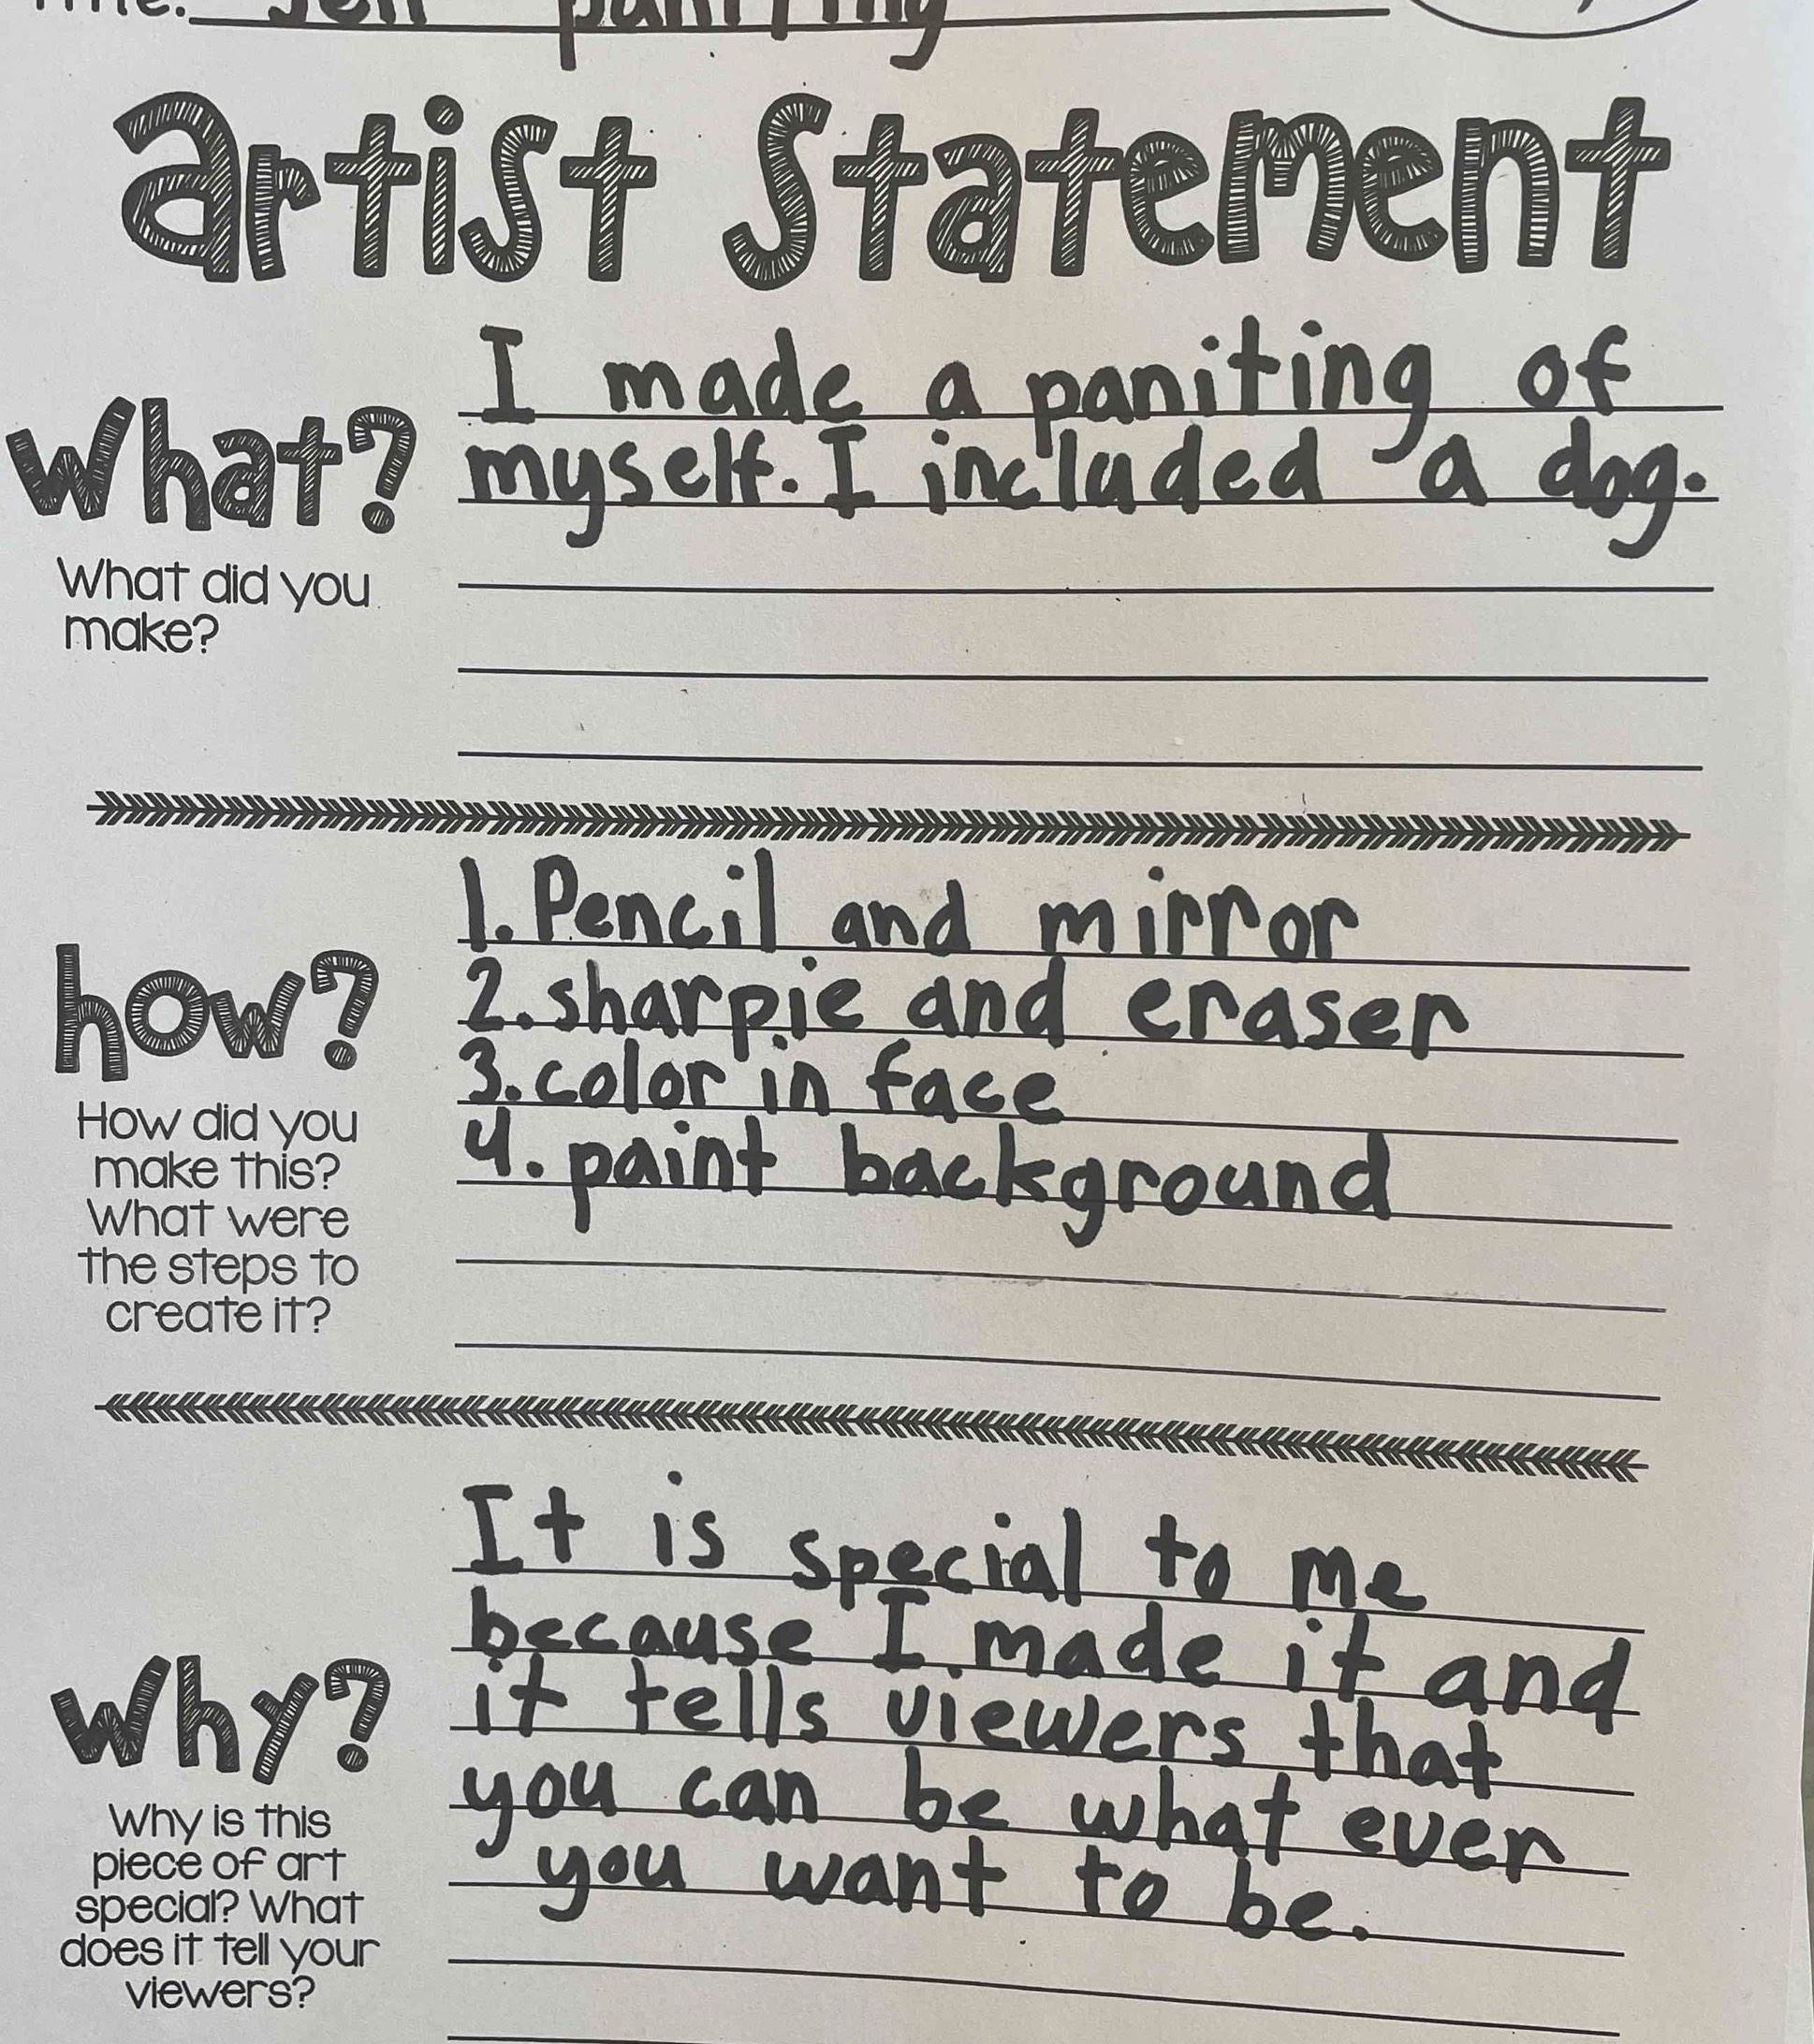 Title: self paniting
artist statement
what?
What did you
make?
I made a paniting of
myself. I included a dog.
how?
How did you
make this?
What were
the steps to
create it?
1. Pencil and mirror
2. sharpie and eraser
3. color in face
4. paint background
why?
Why is this
piece of art
special? What
does it tell your
viewers?
It is special to me
because I made it and
it tells viewers that
you can be what ever
you want to be.